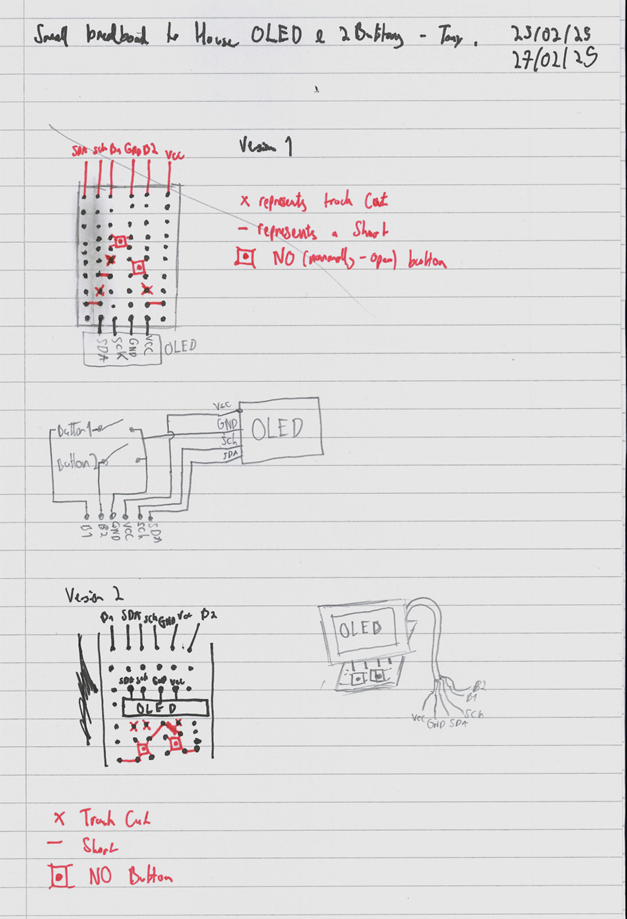 Small breadboard to House OLED & 2 Buttons - Tony. 25/02/25
27/02/25
Version 1
SDA Sck B1 GND B2 Vcc
x represents track Cut
- represents a Short
NO (normally-open) button
SDA SCK GND VCC OLED
Vcc
GND
Sck
SDA
OLED
Button 1
Button 2
B1 B2 GND VCC Sck SDA
Version 2
B1 SDA Sck GND Vcc B2
SDA Sck GND Vcc
OLED
OLED
B2
B1
Vcc GND SDA Sck
x Track Cut
- Short
NO Button